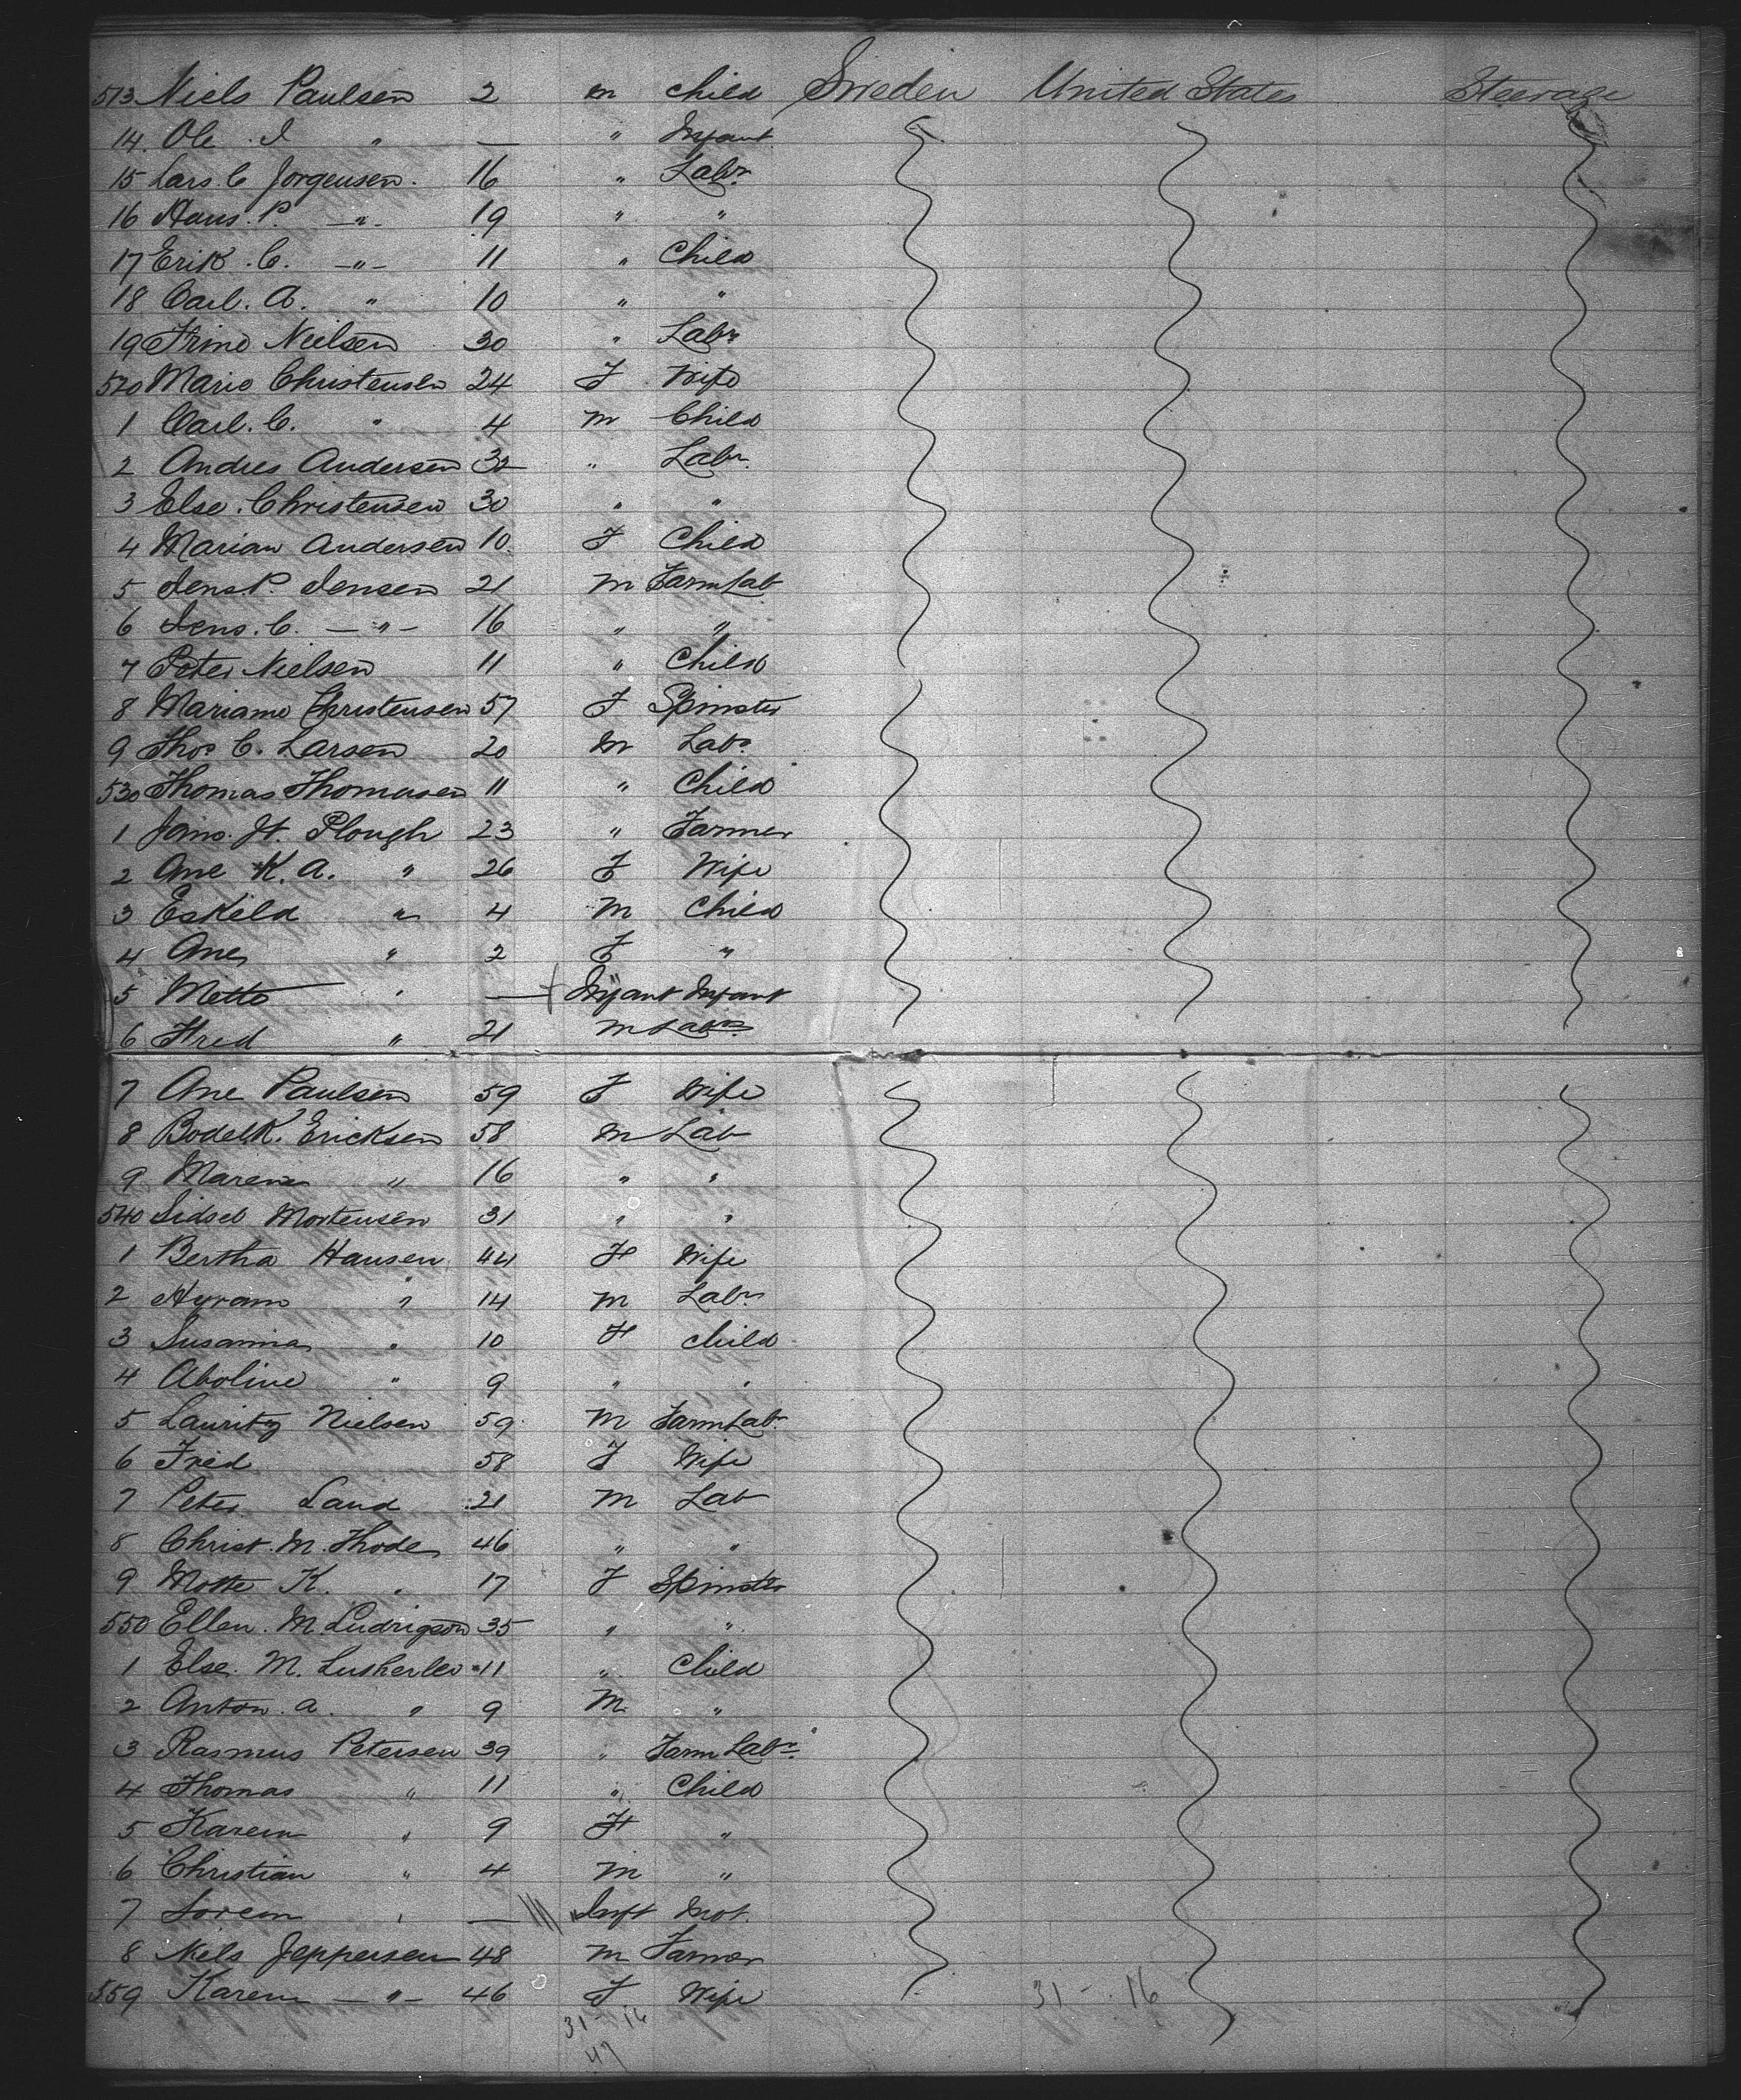 513 Niels Paulsen 2 m Child Sweden United States Steerage
14. Ole. I " — " Infant
15 Lars. C Jorgensen. 16 " Labr.
16 Hans. P. —"- 19 " "
17 Erik. C. —"— 11 " Child
18 Carl. A. " 10 " "
19 Trine Nielsen 30 " Labr
520 Marie Christensen 24 F Wife
1 Carl. C. " 4 m Child
2 Andres Andersen 32 " Labr.
3 Else. Christensen 30 " "
4 Marian Andersen 10 F Child
5 Jens P. Jensen 21 m Farm Lab
6 Jens. C. —"— 16 " "
7 Peter Nielsen 11 " Child
8 Mariane Christensen 57 F Spinster
9 Thos C. Larsen 20 m Labr
530 Thomas Thomasen 11 " Child
1 Jans. Jt. Plough 23 " Farmer
2 Ane K. A. " 26 F Wife
3 Eskild " 4 m Child
4 Ane " 2 F "
5 Mette " — Infant Infant
6 Fred " 21 m Labr
7 Ane Paulsen 59 F Wife
8 Bodel K. Ericksen 58 m Lab
9 Maren " 16 " "
540 Sidsel Mortensen 31 " "
1 Bertha Hansen 44 F Wife
2 Hyram " 14 m Labr
3 Susanna " 10 F Child
4 Aboline " 9 " "
5 Lauritz Nielsen 59 m Farm Labr
6 Fred 58 F Wife
7 Peter Land 21 m Lab
8 Christ. M. Thode 46 " "
9 Mette K. " 17 F Spinster
550 Ellen. M. Ludvigson 35 " "
1 Else. M. 11 " Child
2 Anton. a. " 9 M "
3 Rasmus Petersen 39 " Farm Labr.
4 Thomas " 11 " Child
5 Karen " 9 F "
6 Christian " 4 m "
7 Soren " — Inft
8 Niels Jeppersen 48 m Farmer
559 Karen —"— 46 F Wife 31 - 16
31 - 16
47